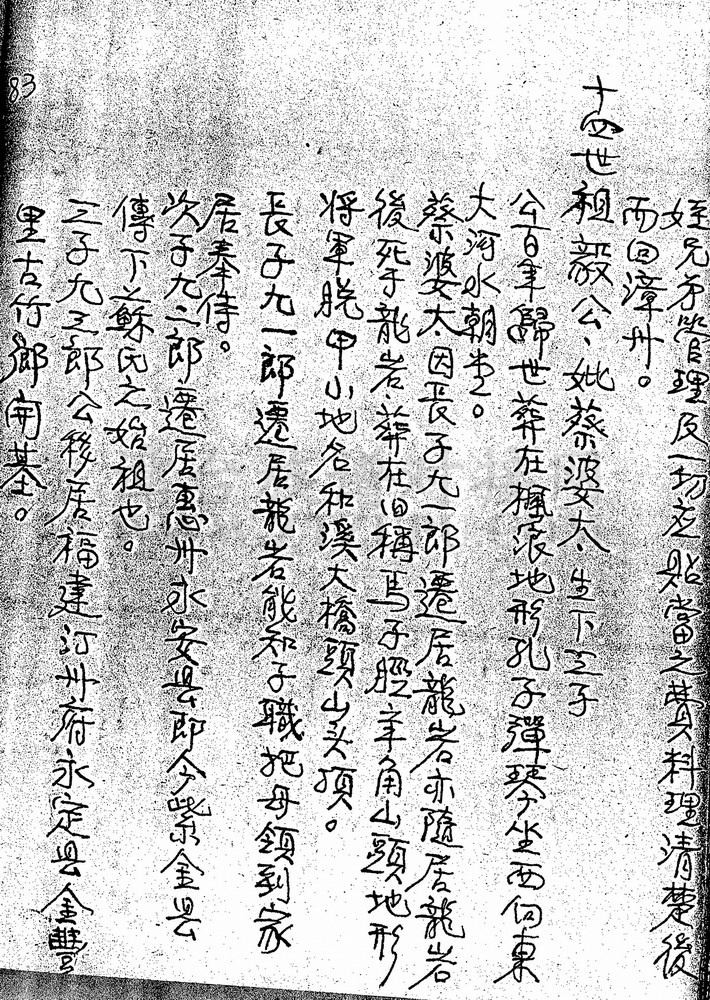 姪兄弟管理及一切应贴當之費料理清楚後
而回漳州。
十四世祖毅公、妣蔡婆太、生下三子
公百年歸世葬在楓浪地形孔子彈琴坐西向東
大河水朝堂。
蔡婆太因長子九一郎遷居龍岩亦隨居龍岩
後死于龍岩、葬在旧稱馬子脛羊角山頭地形
将軍脱甲小地名和溪大橋頭山头頂。
長子九一郎遷居龍岩能知子職把母領到家
居奉侍。
次子九二郎遷居惠州永安县即今紫金县
傳下蘇氏之始祖也。
三子九三郎公移居福建汀州府永定县金豐
里古竹鄉開基。
83